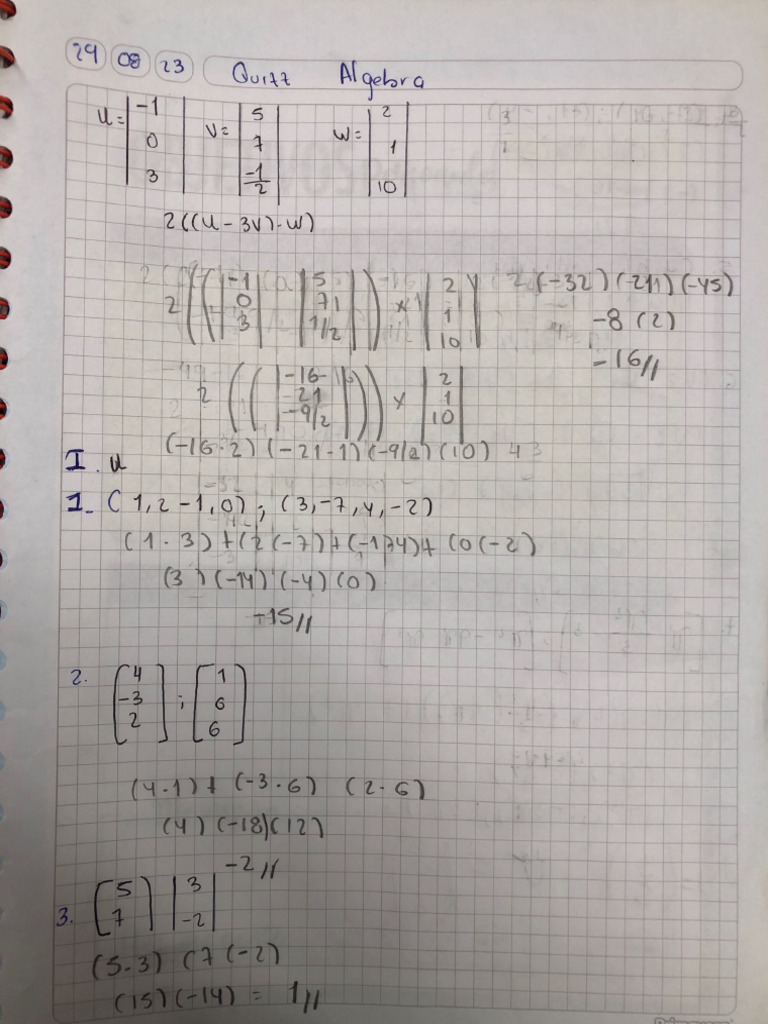 29 08 23 Quizz Algebra
U = |-1 0 3| V = |5 7 -1/2| W = |2 1 10|
2((U - 3V) · W)
2((|-1 0 3| |5 71 1/2|)) × |2 1 10| 2 (-32) (-211) (-45)
-8 (2)
-16//
2((|-16 -21 -9/2|)) × |2 1 10|
(-16·2) (-21-1) (-9/2) (10)
I. u
1- (1,2-1,0) ; (3,-7,4,-2)
(1·3) + (2(-7)) + (-1)(4) + (0(-2)
(3) (-14) (-4) (0)
-15//
2. [4 -3 2] ; [1 6 6]
(4·1) + (-3·6) (2·6)
(4) (-18) (12)
-2//
3. [5 7] |3 -2|
(5·3) (7(-2)
(15) (-14) = 1//